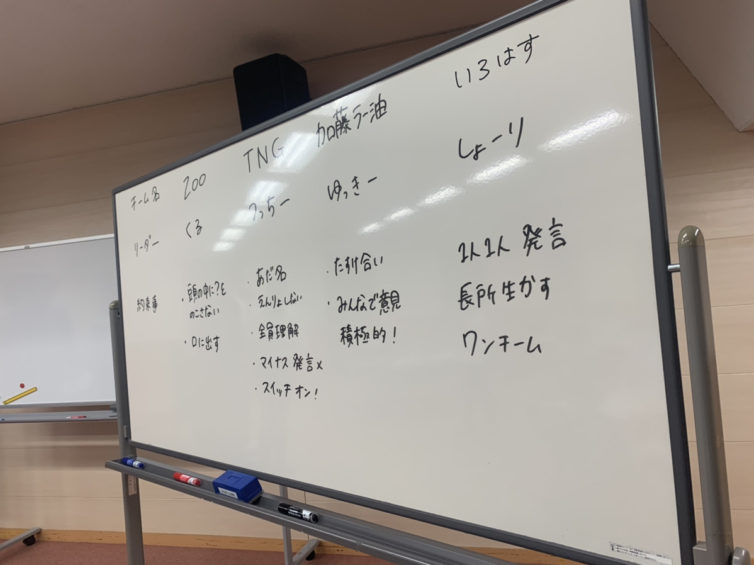 チーム名 ZOO TNG 加藤ラー油 いろはす
リーダー くる つっちー ゆっきー しょーり
約束事
・頭の中に?を
のこさない
・口に出す
・あだ名
・えんりょしない
・全員理解
・マイナス発言×
・スイッチオン!
・たすけ合い
・みんなで意見
積極的!
1人1人 発言
長所生かす
ワンチーム